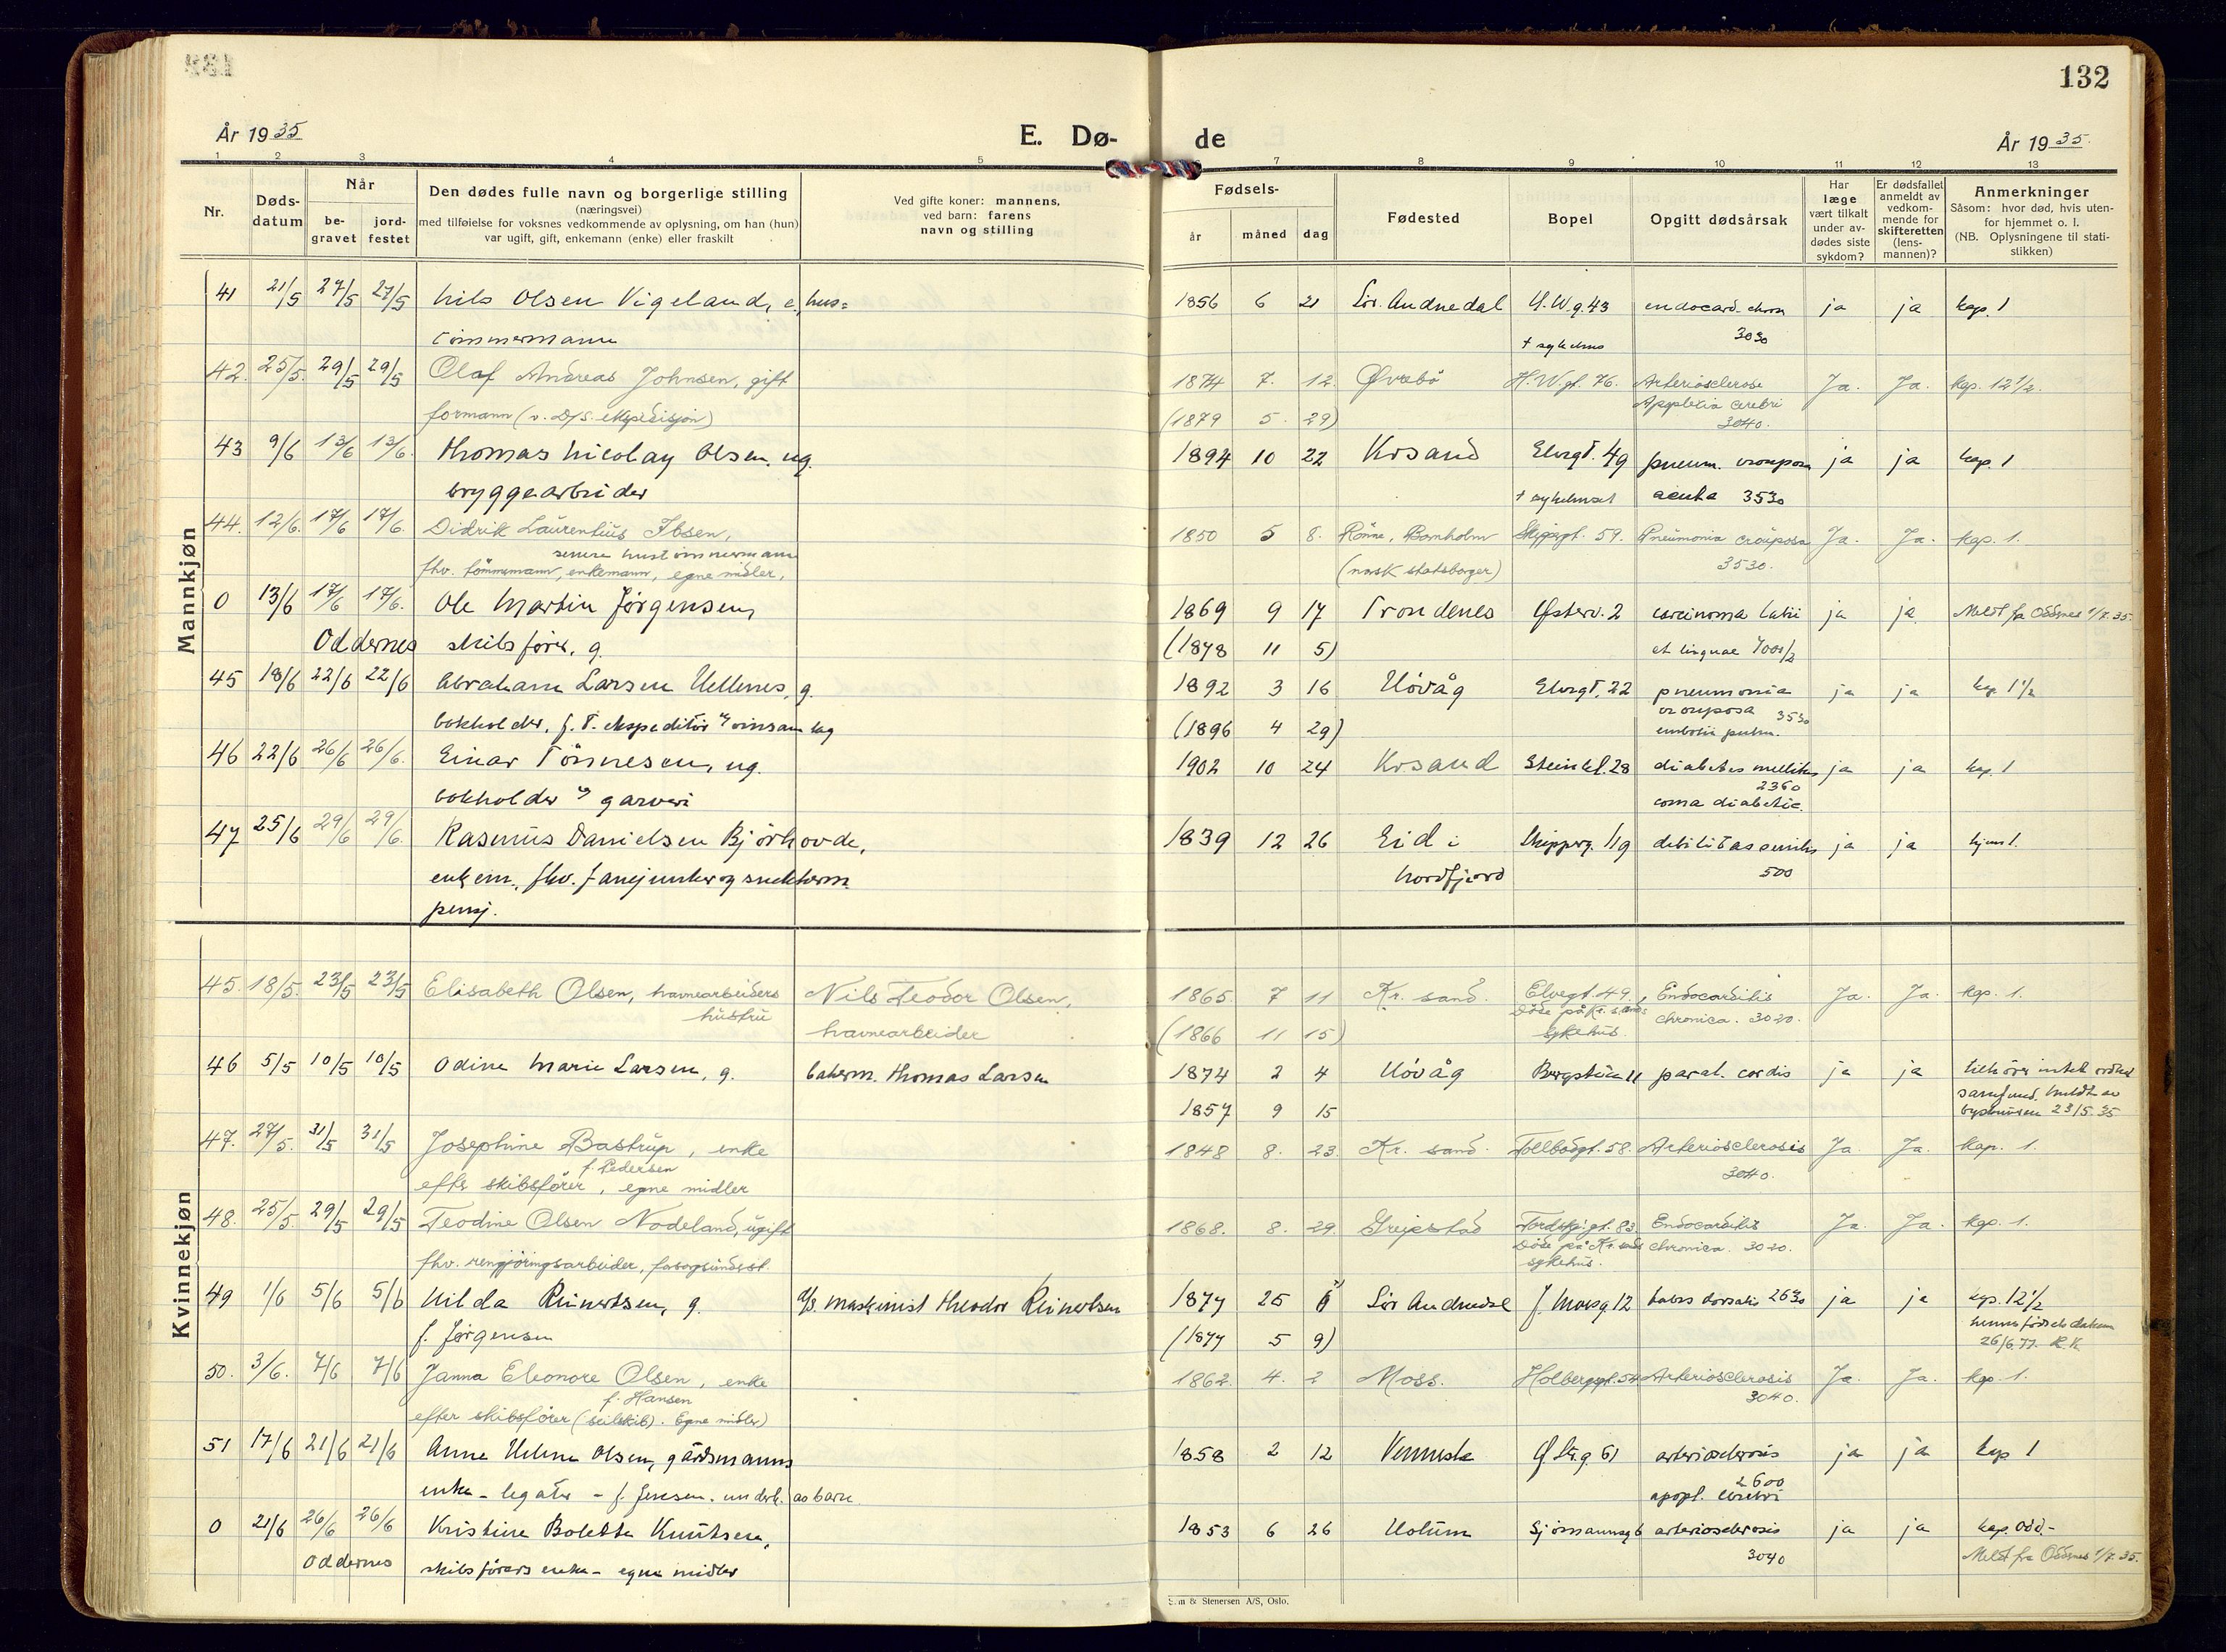 132
År 1935
E. Dø-
de
År 1935.
1 2 3 4 5 6 7 8 9 10 11 12 13
Nr.
Døds-
datum
Når
be-
gravet
jord-
festet
Den dødes fulle navn og borgerlige stilling
(næringsvei)
med tilføielse for voksnes vedkommende av oplysning, om han (hun)
var ugift, gift, enkemann (enke) eller fraskilt
Ved gifte koner: mannens,
ved barn: farens
navn og stilling
Fødsels-
år
måned
dag
Fødested
Bopel
Opgitt dødsårsak
Har
læge
vært tilkalt
under av-
dødes siste
sykdom?
Er dødsfallet
anmeldt av
vedkom-
mende for
skifteretten
(lens-
mannen)?
Anmerkninger
Såsom: hvor død, hvis uten-
for hjemmet o. l.
(NB. Oplysningene til stati-
stikken)
Mannkjøn
41 21/5 27/5 27/5 Nils Olsen Vigeland, e., hus= 1856 6 21 Sör. Audnedal H.W.g. 43 endocard. chron ja ja kap. 1
tömmermann † sykehus 3030
42. 25/5. 29/5 29/5 Olaf Andreas Johnsen, gift 1874 7. 12. Øvrebö H.W.gt. 76. Arteriosclerose Ja. Ja. kap. 12 1/2.
formann (v. D/S. ekspedisjon) (1879 5. 29) Apoplexia cerebri
3040.
43 9/6 13/6 13/6. Thomas Nicolay Olsen, ug. 1894 10 22 Krsand Elvegt. 49 pneum. crouposa ja ja kap. 1
bryggearbeider † sykehuset acuta 3530
44. 12/6. 17/6 17/6. Didrik Laurentius Ibsen, 1850 5 8. Rönne, Bornholm Skippergt. 59. Pneumonia crouposa Ja. Ja. kap. 1.
senere hustömmermann
fhv. tömmermann, enkemann, egne midler, (norsk statsborger) 3530.
0 13/6 17/6 17/6. Ole Martin Jörgensen, 1869 9 17 Trondenes Østerv. 2 carcinoma labii ja ja Meldt fra Oddnes 1/7. 35.
Oddernes skibsförer, g. (1878 11 5) et linguae
45 18/6 22/6 22/6 Abraham Larsen Hellenes, g. 1892 3 16 Hövåg Elvegt. 22 pneumonia ja ja kap. 1 1/2
bokholder, f. t. ekspeditör (1896 4 29) crouposa 3530
embolii pulm.
46 22/6 26/6 26/6. Einar Tönnesen, ug. 1902 10 24 Krsand Steinkl. 28 diabetes mellitus ja ja kap. 1
bokholder garveri 2360
coma diabetic.
47 25/6 29/6 29/6. Rasmus Danielsen Bjørhovde, 1839 12 26 Eid i Skipperg. 119 debilitas senilis ja ja hjem 1.
enkem., fhv. fanejunker og snekkerm. Nordfjord 500
pensj.
Kvinnekjøn
45. 18/5. 23/5 23/5 Elisabeth Olsen, havnearbeiders Nils Teodor Olsen, 1865. 7 11 Kr. sand. Elvegt. 49. Endocarditis Ja. Ja. kap. 1.
hustru havnearbeider (1866 11 15) Döde på Kr. sands chronica. 3020.
sykehus.
46 5/5 10/5 10/5 Odine Marie Larsen, g. bakerm. Thomas Larsen 1874 2 4 Hövåg Bergstien 11 paral. cordis ja ja tilhörer intet ordnet
1857 9 15 samfund. Meldt av
23/5. 35
47. 27/5. 31/5 31/5 Josephine Bastrup, enke 1848 8. 23. Kr. sand. Tollbodgt. 58. Arteriosclerosis Ja. Ja. kap. 1.
f. Pedersen
efter skibsförer, egne midler 3040.
48. 25/5. 29/5 29/5 Teodine Olsen Nodeland, ugift 1868. 8. 29. Greipstad Tordskj.gt. 83. Endocarditis Ja. Ja. kap. 1.
fhv. rengjöringsarbeider, forsorgsunderst. Döde på Kr. sands chronica. 3020.
sykehus.
49 1/6 5/6 5/6 Hilda Reinertsen, g. d/s. maskinist Theodor Reinertsen 1877 25 6 Sör Audnedal J. Moesg. 12 tabes dorsalis 2630 ja ja kap. 12 1/2
f. Jörgensen (1877 5 9) hennes födselsdatum
26/6. 77. R. K.
50. 3/6. 7/6 7/6 Janna Eleonore Olsen, enke 1862. 4. 2 Moss. Holbergsgt. 54 Arteriosclerosis Ja. Ja. kap. 1.
f. Hansen
efter skibsförer (seilskib). Egne midler) 3040.
51 17/6 21/6 21/6 Anne Helene Olsen, gårdsmanns 1858 2 12 Vennesla Ø. Str.g. 61 arteriosclerosis ja ja kap 1
enke - legater - f. Jensen. underh. av barn. 2600
apopl. cerebri
0 21/6 26/6 26/6 Kristine Bolette Knutsen, 1853 6 26 Holum Sjömannsg 6 arteriosclerosis ja ja kap. Odd.-
Oddernes skibsförers enke - egne midler 3040 Meldt fra Oddnes 1/7. 35.
& Stenersen A/S, Oslo.